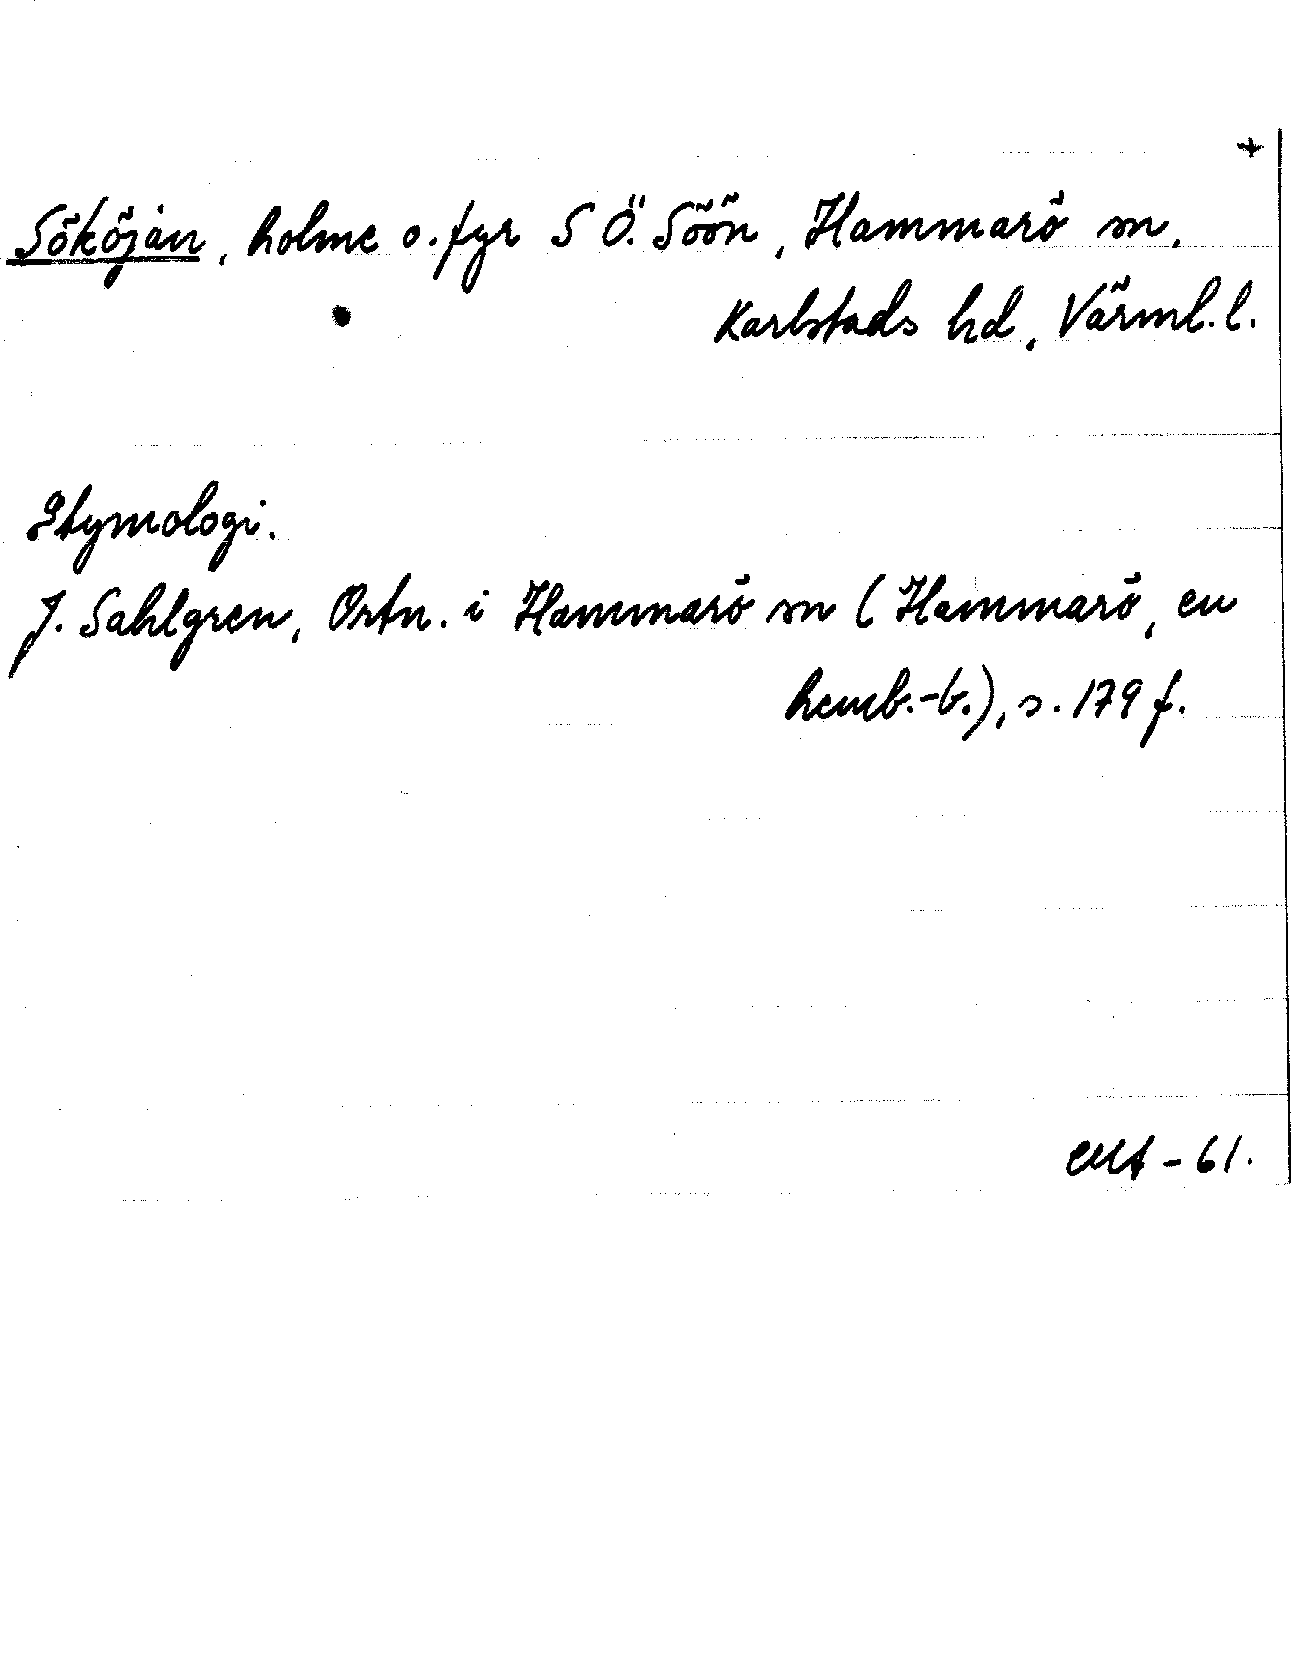 Sököjan, holme o. fyr S Ö. Söön, Hammarö sn,
Karlstads hd, Värml. l.
Etymologi.
J. Sahlgren, Ortn. i Hammarö sn (Hammarö, en
hemb.-b.), s. 179 f.
-61.